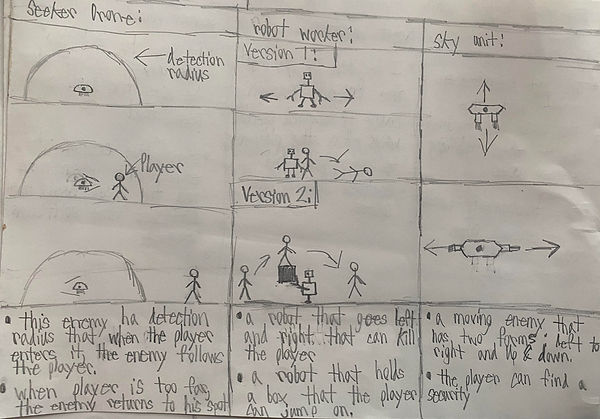 Seeker Drone:
detection
radius
Player
• this enemy ha detection
radius that, when the player
enters it, the enemy follows
the player.
• when player is too far,
the enemy returns to his spot
robot worker:
Version 1:
Version 2:
• a robot that goes left
and right that can kill
the player
• a robot that holds
a box that the player
can jump on.
Sky unit:
• a moving enemy that
has two forms, left to
right and up & down.
• the player can find a
security